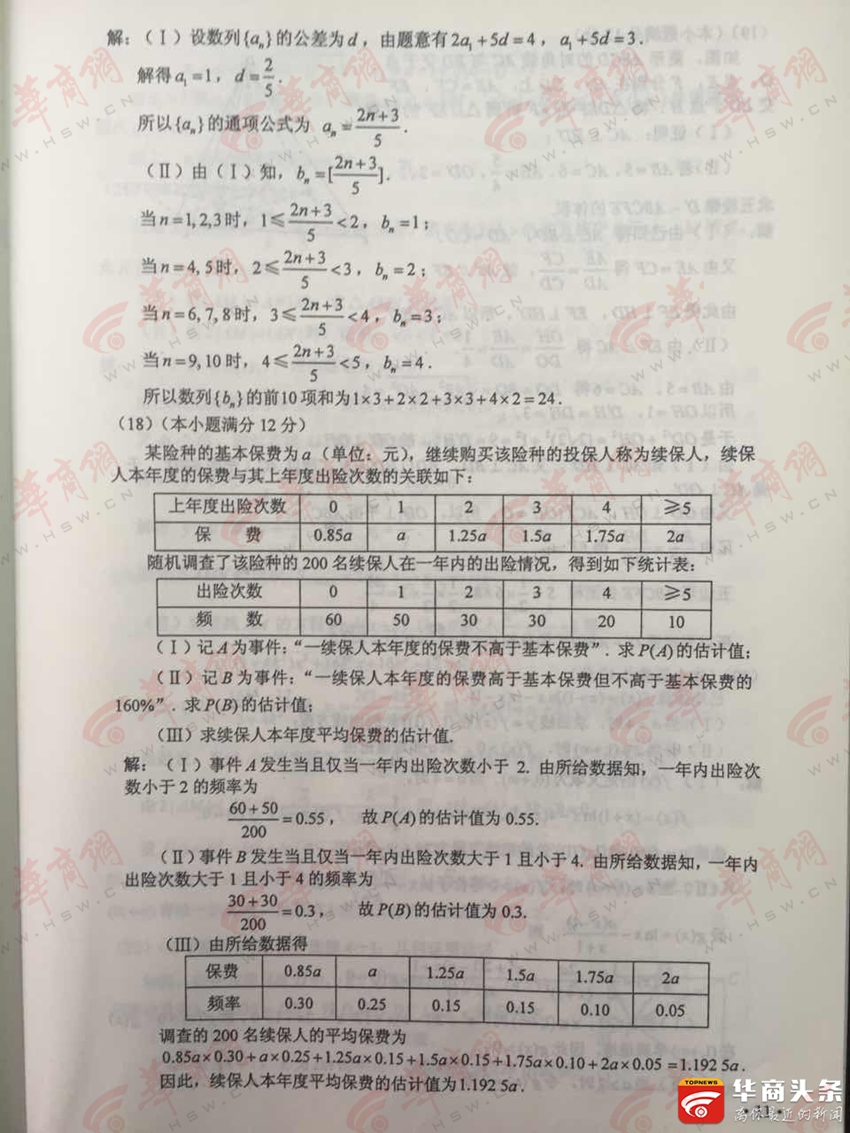 解：（Ⅰ）设数列{aₙ}的公差为d，由题意有2a₁+5d=4，a₁+5d=3.
解得a₁=1，d=2/5.
所以{aₙ}的通项公式为 aₙ=(2n+3)/5.
（Ⅱ）由（Ⅰ）知，bₙ=[(2n+3)/5].
当n=1,2,3时，1≤(2n+3)/5<2，bₙ=1；
当n=4,5时，2≤(2n+3)/5<3，bₙ=2；
当n=6,7,8时，3≤(2n+3)/5<4，bₙ=3；
当n=9,10时，4≤(2n+3)/5<5，bₙ=4.
所以数列{bₙ}的前10项和为1×3+2×2+3×3+4×2=24.
（18）（本小题满分12分）
某险种的基本保费为a（单位：元），继续购买该险种的投保人称为续保人，续保
人本年度的保费与其上年度出险次数的关联如下：
上年度出险次数 0 1 2 3 4 ≥5
保 费 0.85a a 1.25a 1.5a 1.75a 2a
随机调查了该险种的200名续保人在一年内的出险情况，得到如下统计表：
出险次数 0 1 2 3 4 ≥5
频 数 60 50 30 30 20 10
（Ⅰ）记A为事件：“一续保人本年度的保费不高于基本保费”. 求P(A)的估计值；
（Ⅱ）记B为事件：“一续保人本年度的保费高于基本保费但不高于基本保费的
160%”. 求P(B)的估计值；
（Ⅲ）求续保人本年度平均保费的估计值.
解：（Ⅰ）事件A发生当且仅当一年内出险次数小于2. 由所给数据知，一年内出险次
数小于2的频率为
(60+50)/200=0.55， 故P(A)的估计值为0.55.
（Ⅱ）事件B发生当且仅当一年内出险次数大于1且小于4. 由所给数据知，一年内
出险次数大于1且小于4的频率为
(30+30)/200=0.3， 故P(B)的估计值为0.3.
（Ⅲ）由所给数据得
保费 0.85a a 1.25a 1.5a 1.75a 2a
频率 0.30 0.25 0.15 0.15 0.10 0.05
调查的200名续保人的平均保费为
0.85a×0.30+a×0.25+1.25a×0.15+1.5a×0.15+1.75a×0.10+2a×0.05=1.192 5a.
因此，续保人本年度平均保费的估计值为1.192 5a.
TOPNEWS
华商头条
离你最近的新闻
华商网
WWW.HSW.CN